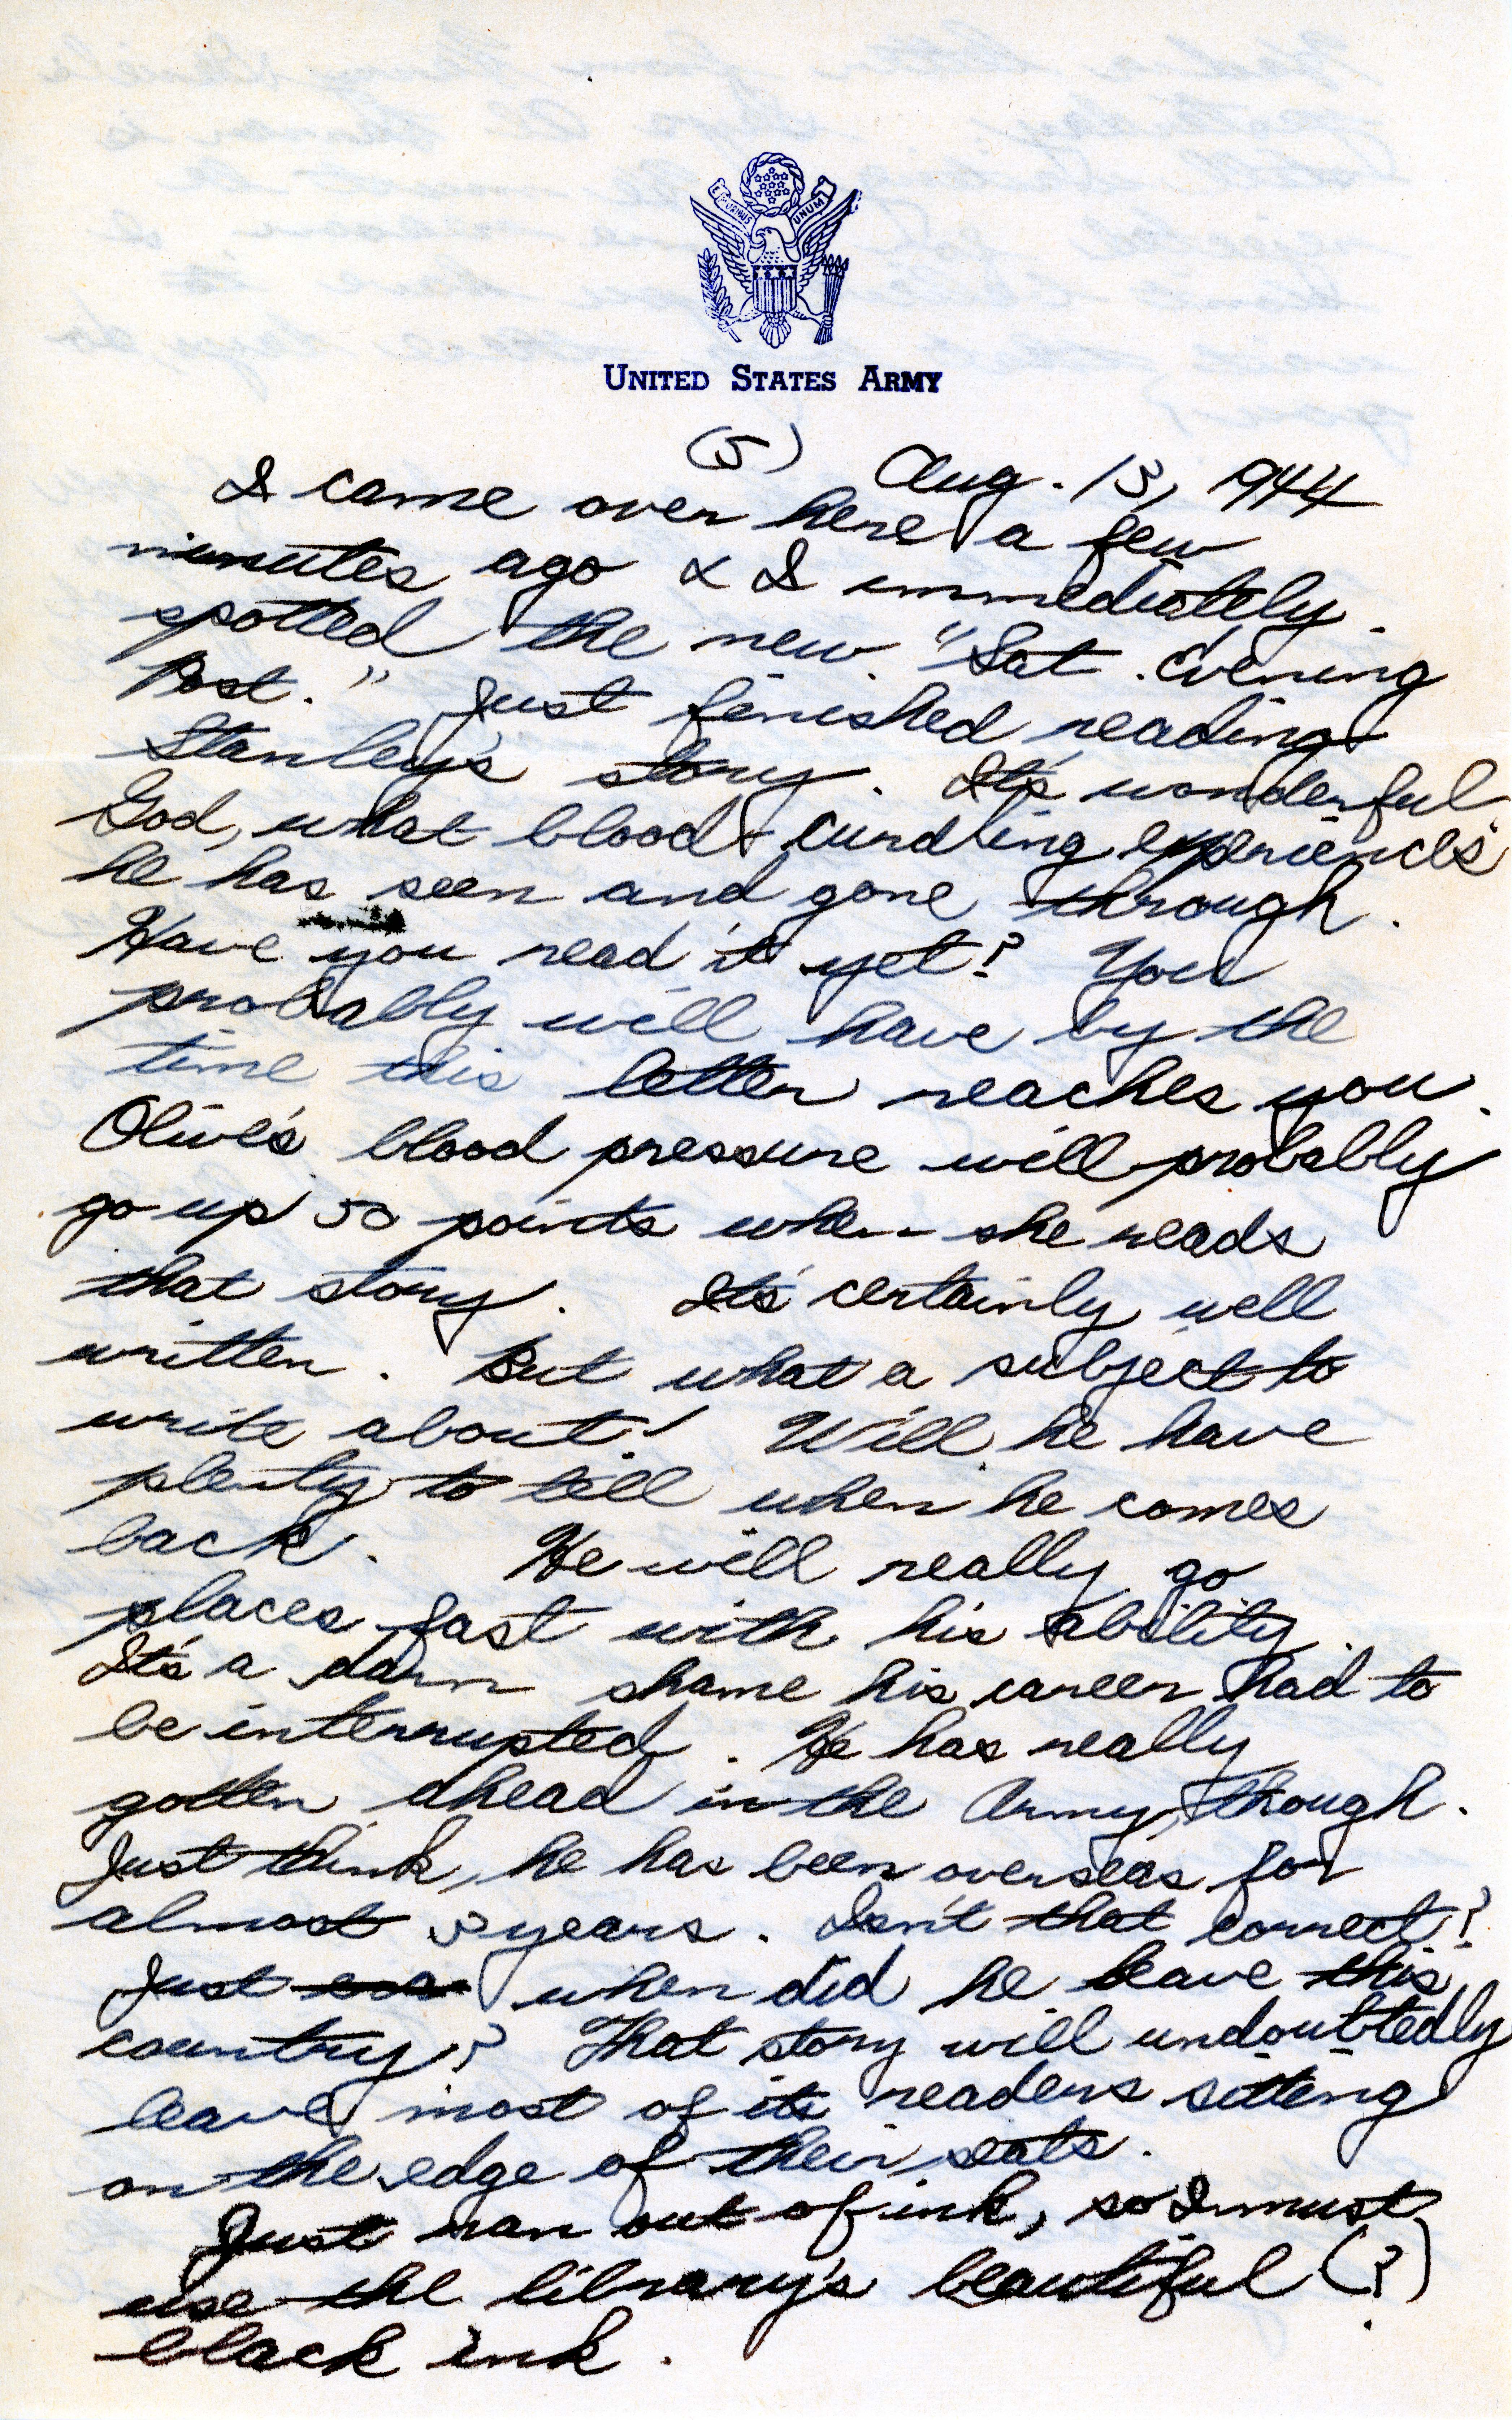 E PLURIBUS UNUM
UNITED STATES ARMY
(5) Aug. 13, 1944
I came over here a few
minutes ago & I immediately
spotted the new "Sat. Evening
Post." Just finished reading
Stanley's story. It's wonderful.
God, what blood curdling experiences
he has seen and gone through.
Have you read it yet? You
probably will have by the
time this letter reaches you.
Olive's blood pressure will probably
go up 50 points when she reads
that story. It's certainly well
written. But what a subject to
write about! Will he have
plenty to tell when he comes
back. He will really go
places fast with his ability.
It's a darn shame his career had to
be interrupted. He has really
gotten ahead in the Army, though.
Just think, he has been overseas for
almost 3 years. Isn't that correct?
Just when did he leave this
country? That story will undoubtedly
leave most of its readers sitting
on the edge of their seats.
Just ran out of ink, so I must
use the library's beautiful (?)
black ink.